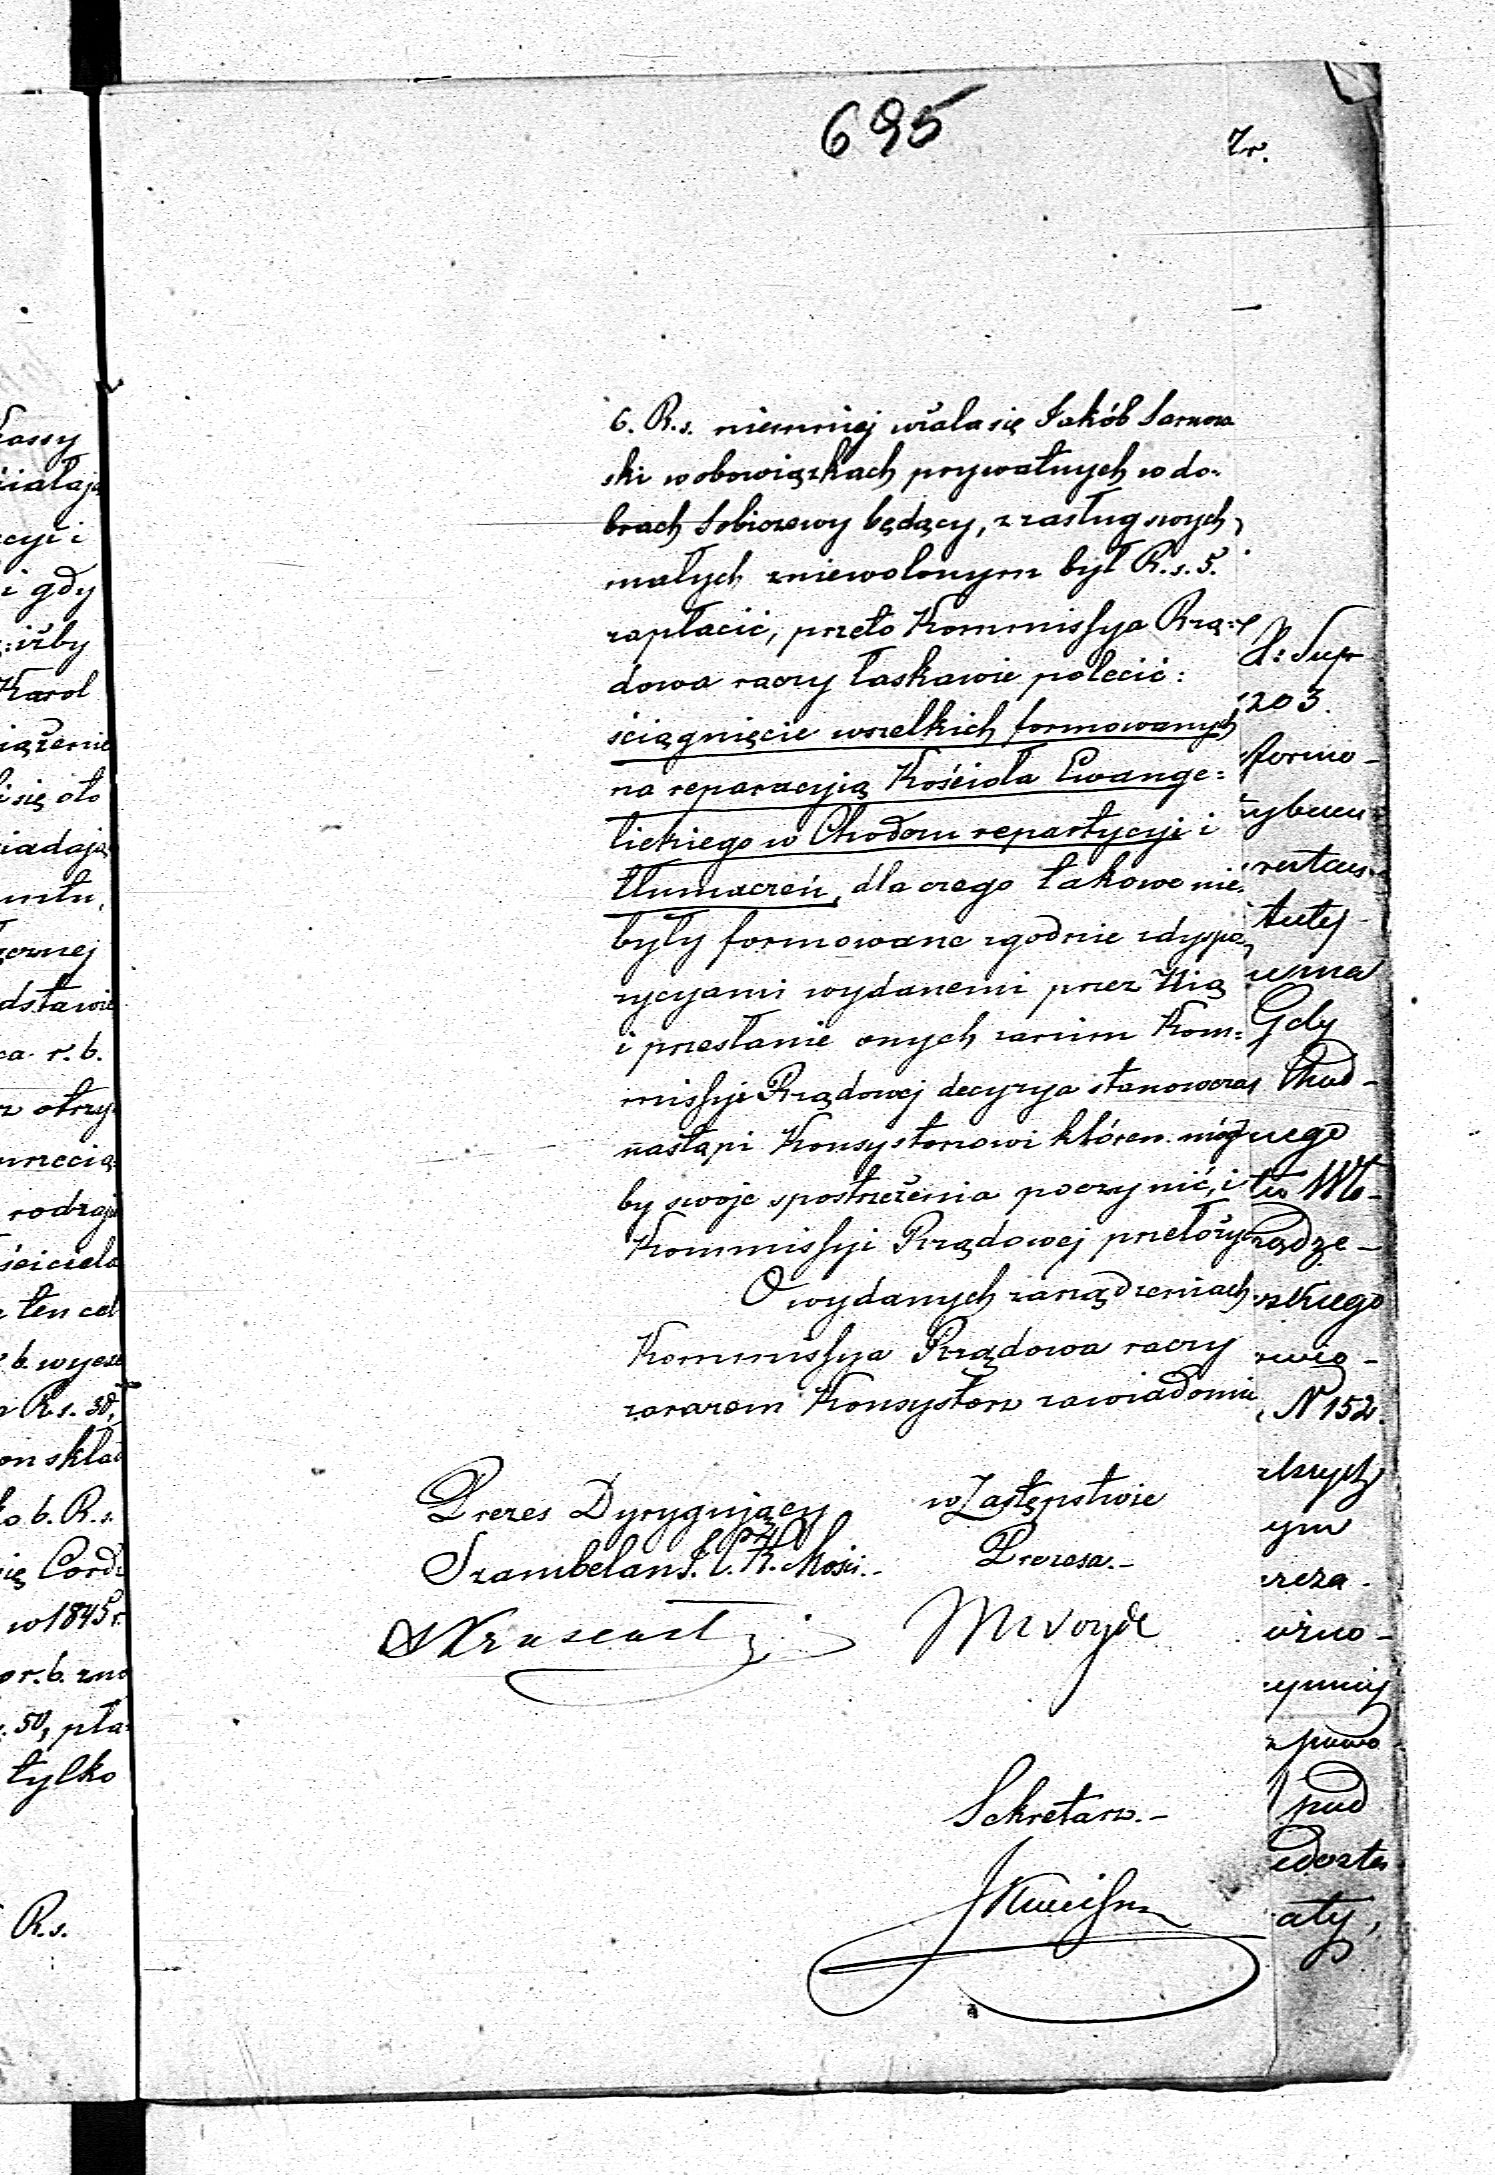 695
6. R.s. niemniej użala się Jakób Sarnow
ski w obowiązkach prywatnych w do-
brach Sobiczewy będący, z zasług swych
małych zniewolonym był R.s. 5.
zapłacić, przeto Kommissya Rzą=
dowa raczy łaskawie polecić:
ściągnięcie wszelkich formowanych
na reparacyią Kościoła Ewange=
lickiego w Chodczu repartycyi i
tłumaczeń, dla czego takowe nie
były formowane zgodnie z dyspo
zycyami wydanemi przez Nią
i przesłanie onych zanim Kom=
missyi Rządowej decyzya stanowcza
nastąpi Konsystorzowi któren mógł
by swoje spostrzeżenia poczynić, i
Kommissyi Rządowej przełożyć
O wydanych zarządzeniach
Kommissya Rządowa raczy
zarazem Konsystorz zawiadomić
Prezes Dyrygujący
Szambelan J. C. K. Mości.-
w Zastępstwie
Prezesa.-
Sekretarz.-
łassy
działają
cyi i
i gdy
iżby
Karol
iążenie
się oto
iadają
dstawie
ca r. b.
z otrzy
rodzaju
ściciela
ten cel
b. wyexe
R.s. 30,
on skład
b. R.s.
się Cord
w 1845 r.
r. b. zno
50, pła=
tylko
R.s.
203.
formo-
Gdy
Chod-
nego
rządze-
skiego
N 152.
pod
aty,